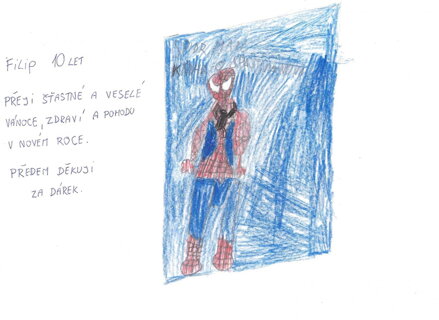 FILIP 10 LET
PŘEJI ŠŤASTNÉ A VESELÉ
VÁNOCE, ZDRAVÍ A POHODU
V NOVÉM ROCE.
PŘEDEM DĚKUJI
ZA DÁREK.